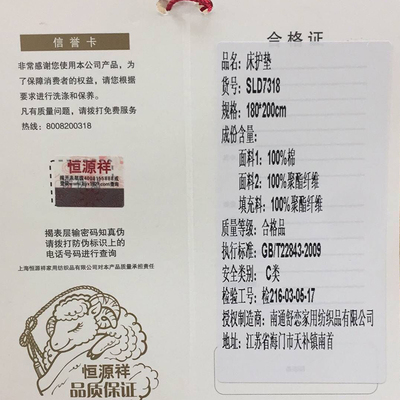 信誉卡
非常感谢您使用本公司产品，为
了保障消费者的权益，请您按照
要求进行洗涤和保养。
凡有质量问题，请拨打免费服务
热线：8008200318
恒源祥
揭表层输密码知真伪
请拨打防伪标识上的
电话号码进行查询
上海恒源祥家用纺织品有限公司对本产品质量承担责任
恒源祥
品质保证
合格证
品名：床护垫
货号：SLD7318
规格：180*200cm
成份含量：
面料1：100%棉
面料2：100%聚酯纤维
填充料：100%聚酯纤维
质量等级：合格品
执行标准：GB/T22843-2009
安全类别：C类
检验工号：检216-03-05-17
授权制造商：南通舒恋家用纺织品有限公司
地址：江苏省海门市天补镇南首